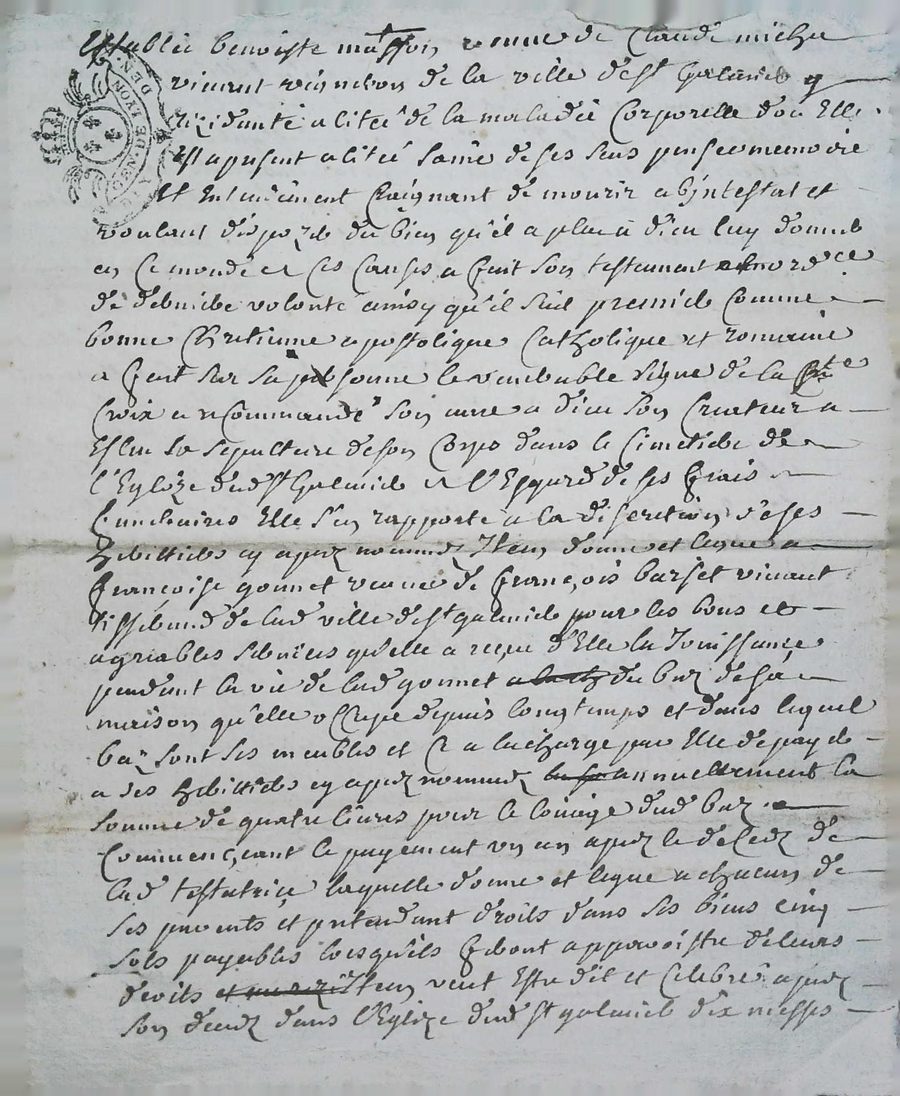 Establie benoiste masson veuve de Claude micha
vivant vigneron de la ville de st Galmier y
rezidante alitée de la maladie Corporelle dou Elle
Est a present alitée saine de ses sens pensee memoire
Et Entandement Craignant de mourir abintestat et
voulant dispozer du bien qu'il a plut à dieu luy donner
en Ce monde et Ces Causes a fait son testament et ordce
de derniere volonté ainsy qu'il suit premier Comme
bonne Chretienne apostolique Catholique et romaine
a fait sur sa personne le venerable signe de la Ste
Croix a recommandé son ame a dieu son Createur a
Eslue sa sepulture de son Corps dans le Cimetiere de
l'Eglize dud st Galmier et a l'Esgard de ses frais
funeraires Elle s'en rapporte a la discretion de ses
heritiers cy aprez nommez Item donne et legue a
francoise gonnet veuve de francois barset vivant
tisserand de lad ville de st galmier pour les bons et
agreables services qu'elle a recue d'Elle la Jouissance
pendant la vie de lad gonnet du baz de sa
maison qu'elle occupe depuis longtemps et dans lequel
baz sont ses meubles et Ce a la charge par Elle de payer
a ses heritiers cy apres nommez annuellement la
somme de quatre livres pour le louage dud baz
Commençant le payement un an apres le decedz de
lad testatrice laquelle donne et legue a chacun de
ses parents et pretendant droits dans ses biens cinq
sols payables lorsqu'ils feront apparoistre de leurs
droits Item veut Estre dit et Celebré apres
son deceds dans l'Eglize dud st galmier dix messes
GEN DE LYON